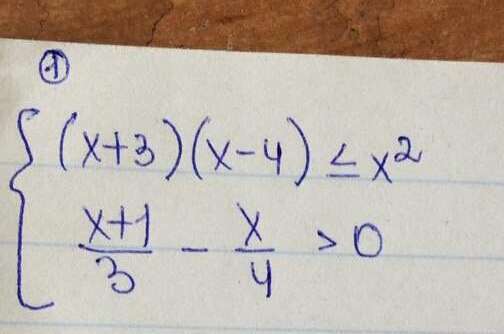 ①
{ (x+3)(x-4) ≤ x²
x+1/3 - x/4 > 0